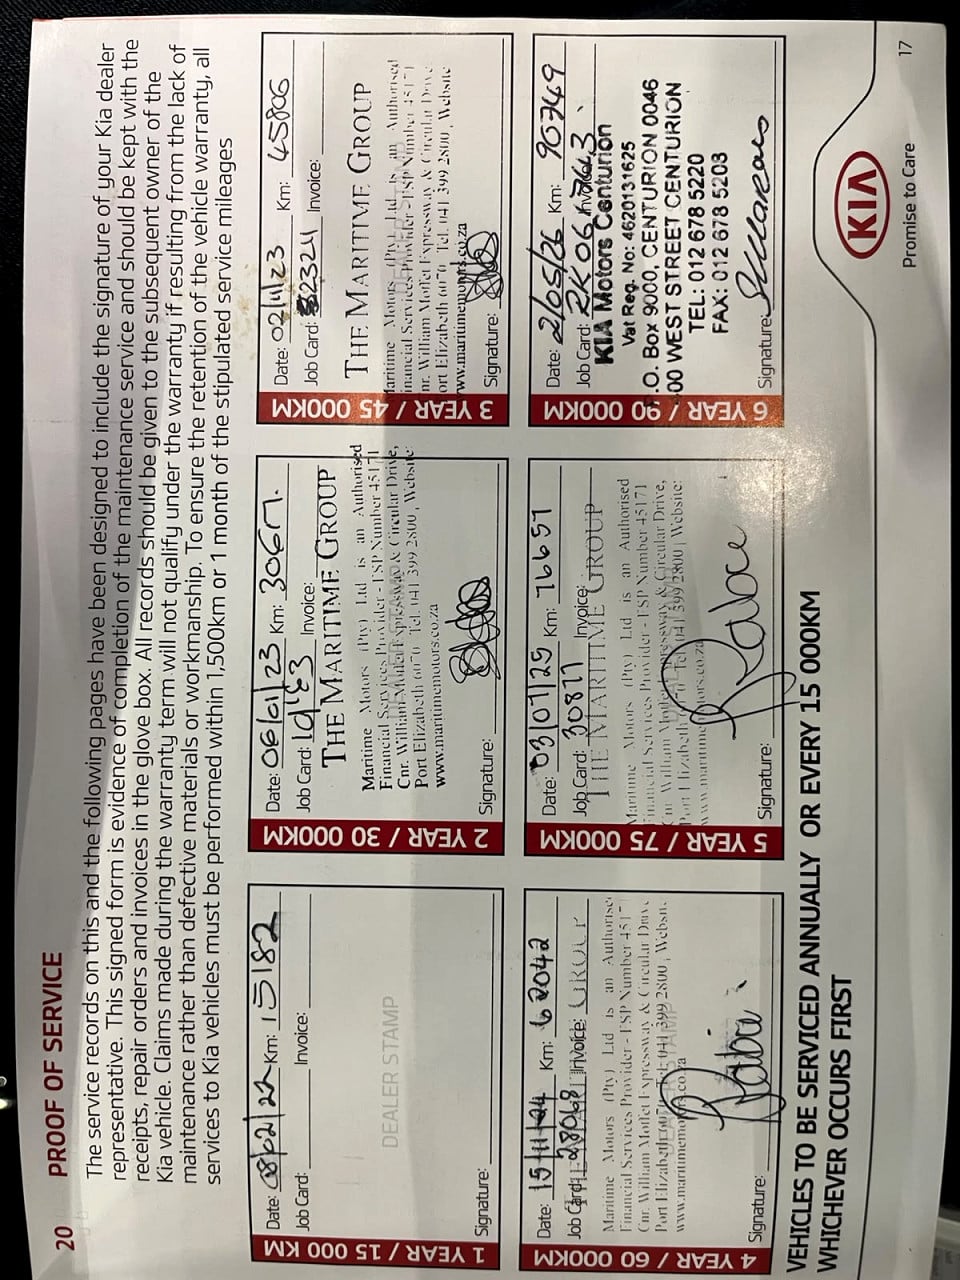 20 PROOF OF SERVICE
The service records on this and the following pages have been designed to include the signature of your Kia dealer
representative. This signed form is evidence of completion of the maintenance service and should be kept with the
receipts, repair orders and invoices in the glove box. All records should be given to the subsequent owner of the
Kia vehicle. Claims made during the warranty term will not qualify under the warranty if resulting from the lack of
maintenance rather than defective materials or workmanship. To ensure the retention of the vehicle warranty, all
services to Kia vehicles must be performed within 1,500km or 1 month of the stipulated service mileages
1 YEAR / 15 000 KM
Date: 08/02/22 Km: 15182
Job Card: Invoice:
DEALER STAMP
Signature:
2 YEAR / 30 000KM
Date: 06/01/23 Km: 30617.
Job Card: Invoice:
THE MARITIME GROUP
Maritime Motors (Pty) Ltd is an Authorised
Financial Services Provider - FSP Number 45171
Cnr. William Moffet Expressway & Circular Drive,
Port Elizabeth 6070 Tel. 041 399 2800, Website:
www.maritimemotors.co.za
Signature:
3 YEAR / 45 000KM
Date: 02/11/23 Km: 45806
Job Card: 2321 Invoice:
THE MARITIME GROUP
Maritime Motors (Pty) Ltd is an Authorised
Financial Services Provider - FSP Number 45171
Cnr. William Moffet Expressway & Circular Drive
Port Elizabeth 6070 Tel. 041 399 2800, Website
www.maritimemotors.co.za
Signature:
4 YEAR / 60 000KM
Date: 15/11/24 Km: 62042
Job Card: 28068 Invoice:
GROUP
Maritime Motors (Pty) Ltd is an Authorise
Financial Services Provider - FSP Number 4517
Cnr. William Moffet Expressway & Circular Drive
Port Elizabeth Tel. 041 399 2800, Website
www.maritimemotors.co.za
Signature:
5 YEAR / 75 000KM
Date: 03/07/25 Km: 76651
Job Card: 30877 Invoice:
THE MARITIME GROUP
Maritime Motors (Pty) Ltd is an Authorised
Financial Services Provider - FSP Number 45171
Cnr William Moffet Expressway & Circular Drive,
Port Elizabeth Tel. 041 399 2800 | Website:
www.maritimemotors.co.za
Signature:
6 YEAR / 90 000KM
Date: 21/05/26 Km: 90749
Job Card: 2K0617643 Invoice:
KIA Motors Centurion
Vat Reg. No: 4620131625
.O. Box 9000, CENTURION 0046
00 WEST STREET CENTURION
TEL: 012 678 5220
FAX: 012 678 5203
Signature:
VEHICLES TO BE SERVICED ANNUALLY OR EVERY 15 000KM
WHICHEVER OCCURS FIRST
KIA
Promise to Care
17